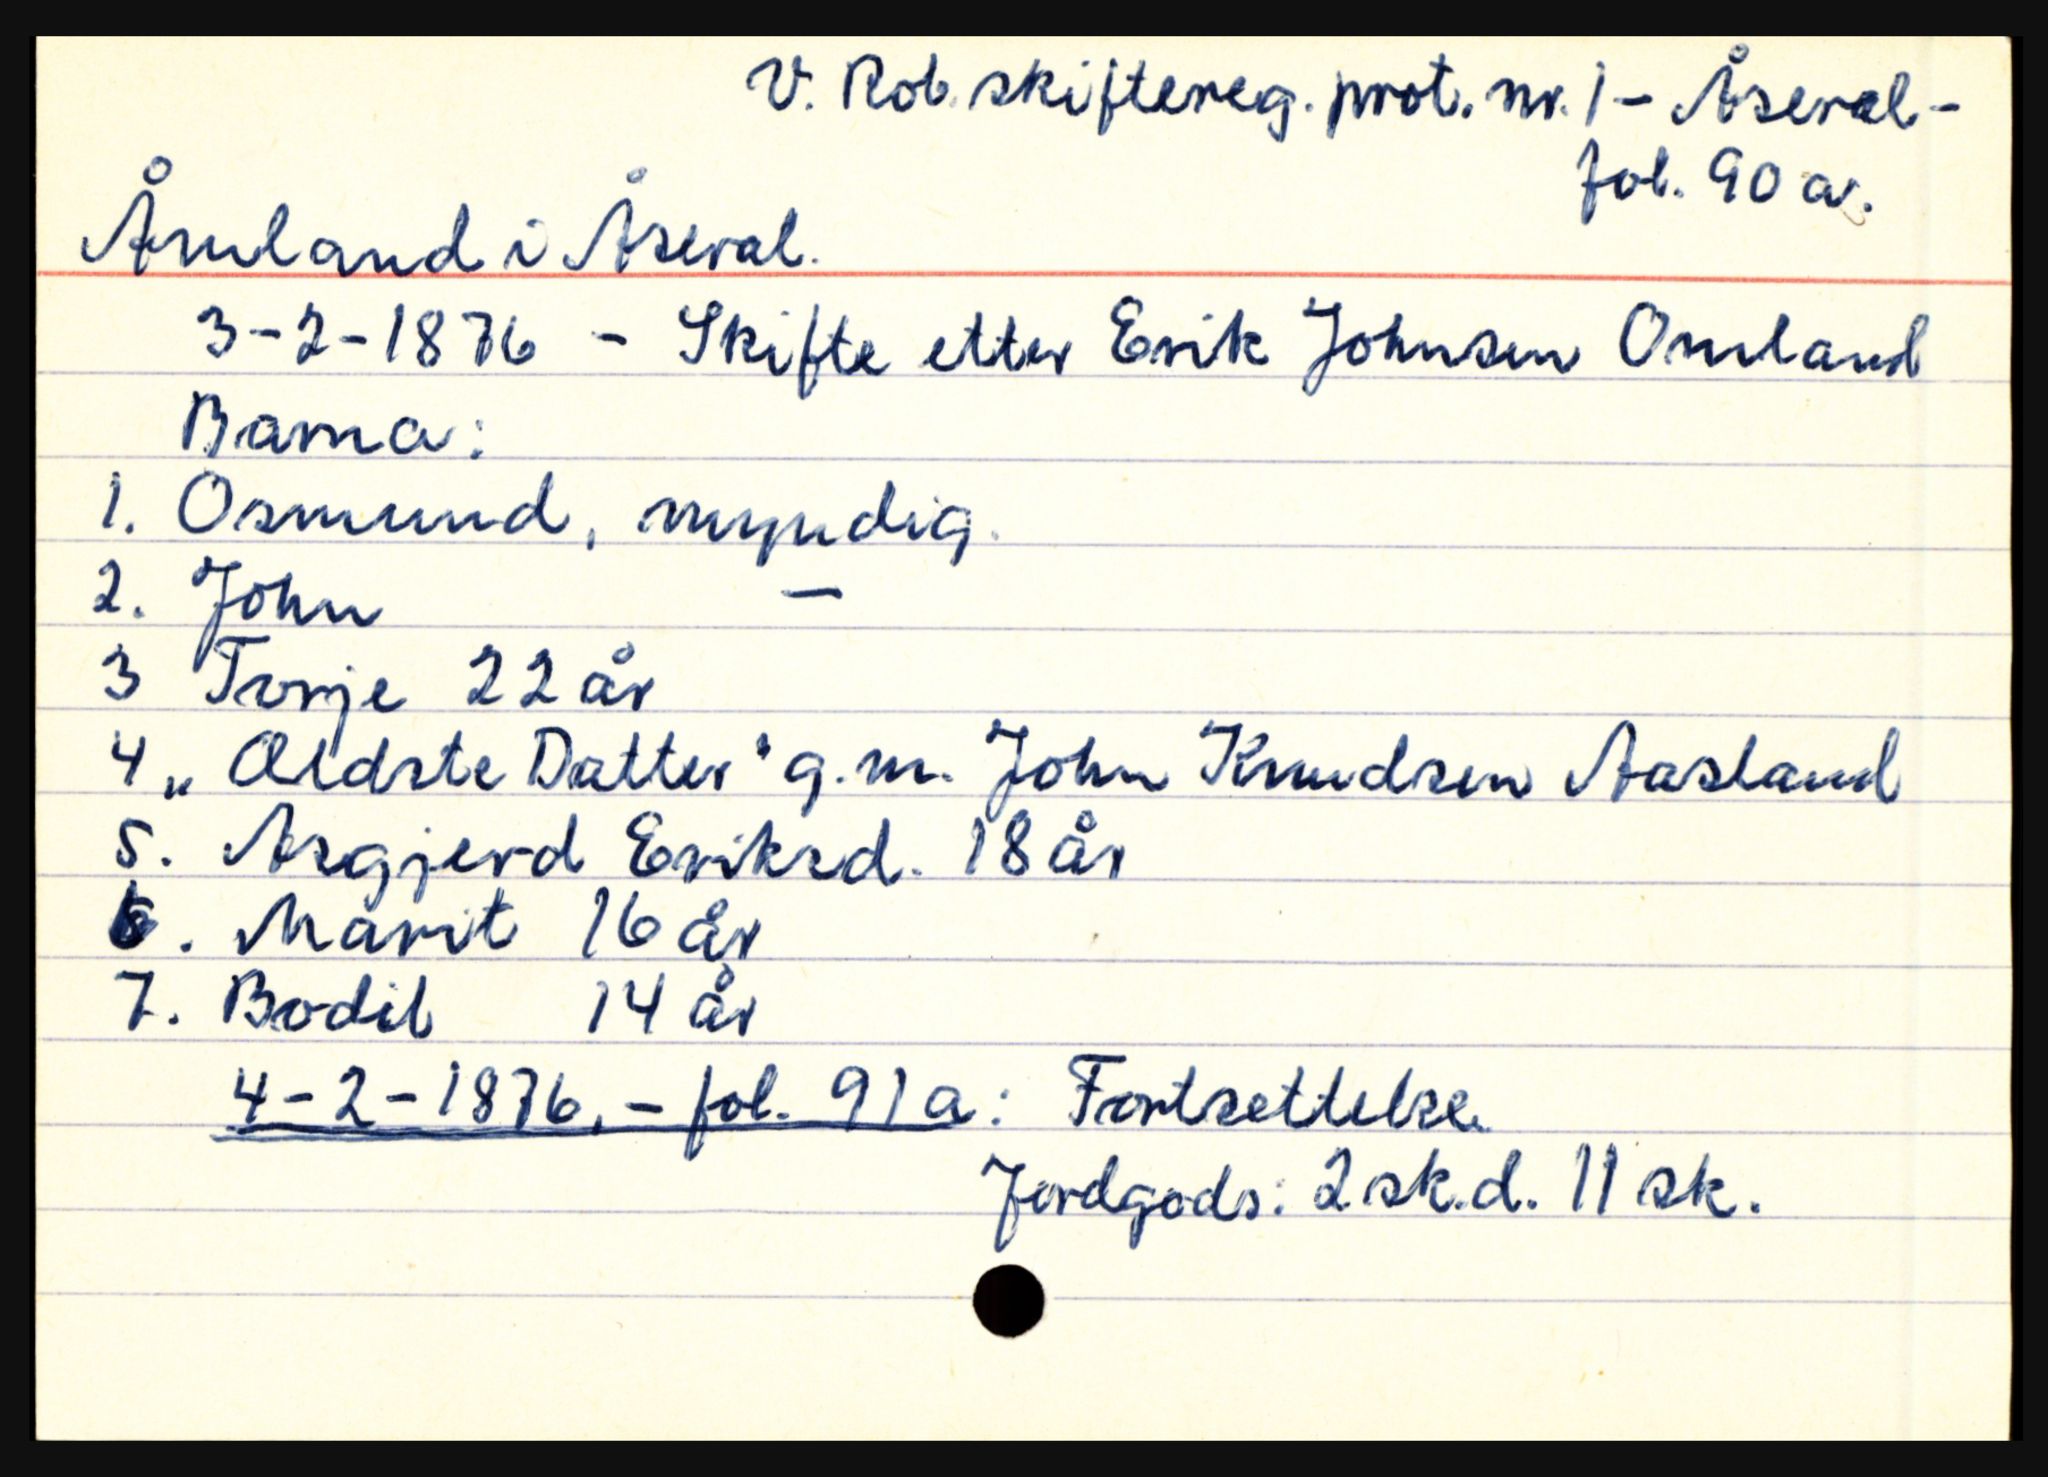 V. Rob. skiftereg. prot. nr. 1 - Åseral -
fol. 90 a.
Åmland i Åseral.
3-2-1876 - Skifte etter Erik Johnsen Omland
Barna:
1. Osmund, myndig.
2. John —
3 Torje 22 år
4 „Ældste Datter" g.m. John Knudsen Aasland
5. Asgjerd Eriksd. 18 år
6. Marit 16 år
7. Bodil 14 år
4-2-1876, - fol. 91a: Fortsettelse.
Jordgods: 2 sk.d. 11 sk.